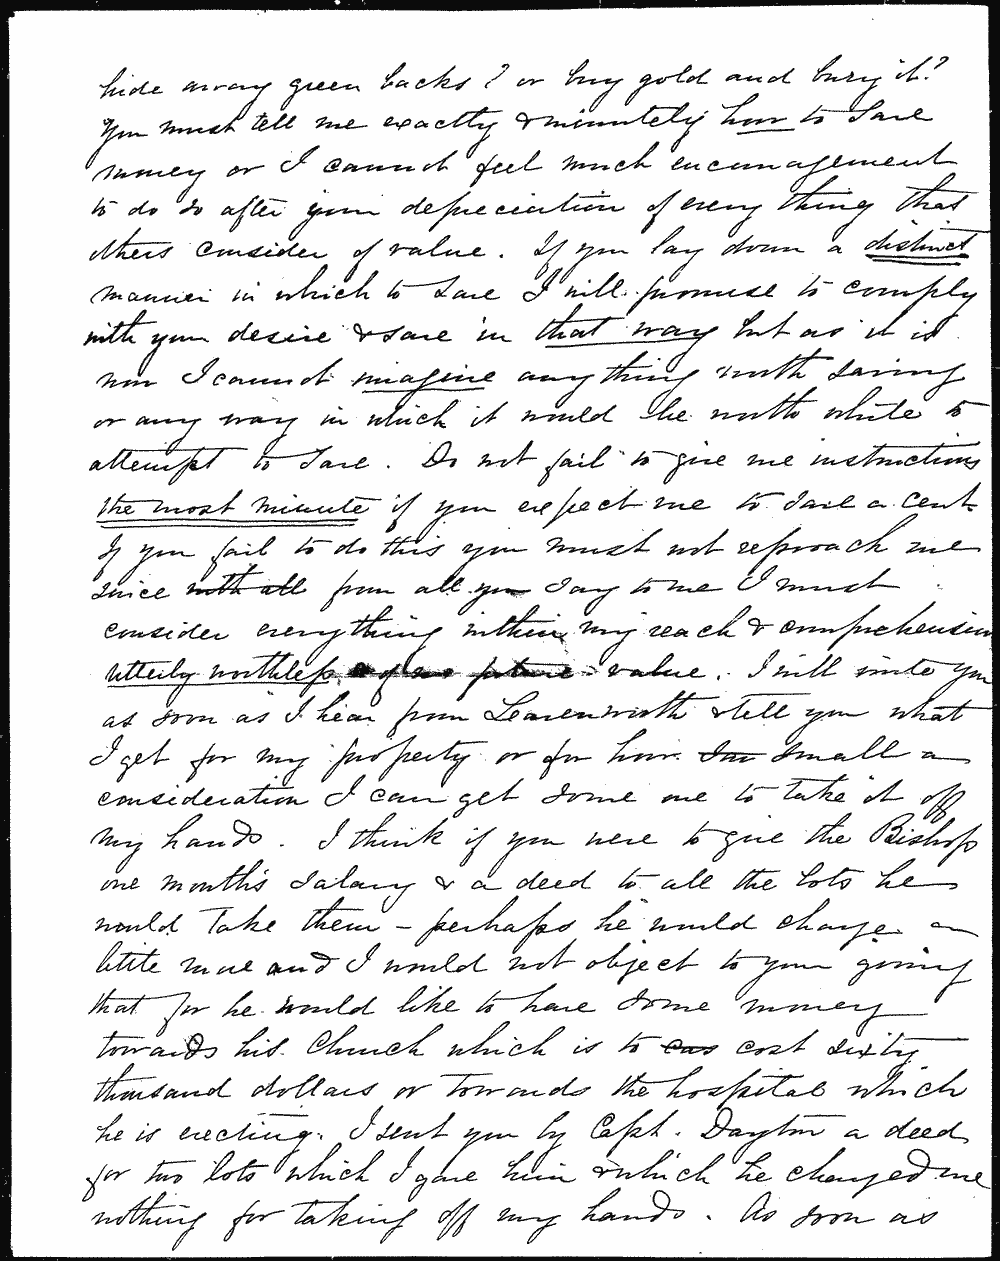 hide away green backs? or buy gold and bury it?
You must tell me exactly & minutely how to save
money or I cannot feel much encouragement
to do so after your depreciation of every thing that
others consider of value. If you lay down a distinct
manner in which to save I will promise to comply
with your desire & save in that way but as it is
now I cannot imagine any thing worth saving
or any way in which it would be worth while to
attempt to save. Do not fail to give me instructions
the most minute if you expect me to save a cent.
If you fail to do this you must not reproach me
since with all from all you say to me I must
consider everything within my reach & comprehension
utterly worthless & of no future value. I will write you
as soon as I hear from Leavenworth & tell you what
I get for my property or for how small a
consideration I can get some one to take it off
my hands. I think if you were to give the Bishop
one month's salary & a deed to all the lots he
would take them – perhaps he would charge a
little more and I would not object to your giving
that for he would like to have some money
towards his Church which is to cos cost sixty
thousand dollars or towards the hospital which
he is erecting. I sent you by Capt. Dayton a deed
for two lots which I gave him & which he charged me
nothing for taking off my hands. As soon as